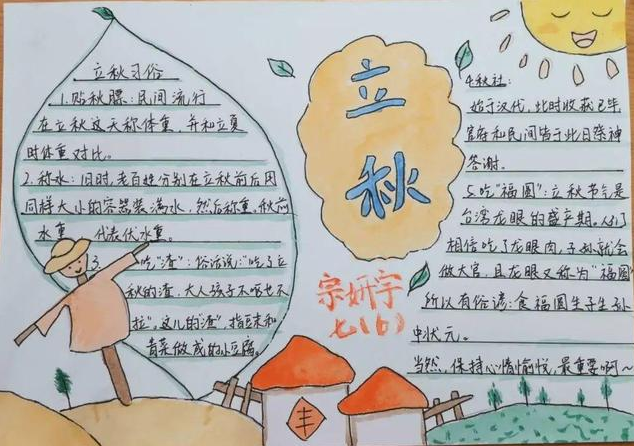 立秋习俗
1.贴秋膘：民间流行
在立秋这天称体重，并和立夏
时体重对比。
2.称水：旧时，老百姓分别在立秋前后用
同样大小的容器装满水，然后称重，秋前
水重 代表伏水重。
3. 吃"渣"：俗话说："吃了立
秋的渣，大人孩子不呕也不
拉"，这儿的"渣"，指豆末和
青菜做成的小豆腐。
立秋
宗妍宇
七(6)
4.秋社：
始于汉代，此时收获已毕
官府和民间皆于此日祭神
答谢。
5.吃"福圆"：立秋节气是
台湾龙眼的盛产期。人们
相信吃了龙眼肉，子孙就会
做大官，且龙眼又称为"福圆"
所以有俗谚：食福圆生子生孙
中状元。
当然，保持心情愉悦，最重要啊～
丰